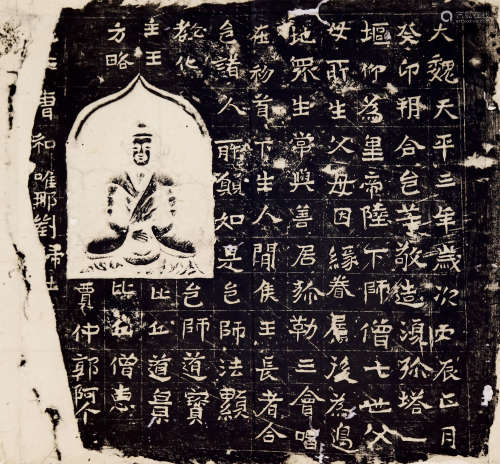 大魏天平三年歲次丙辰正月
癸卯朔合邑等敬造須弥塔一
堀仰為皇帝陛下師僧七世父
母所生父母因緣眷属後為邊
地眾生常與善居弥勒三會唱
在初首下生人間侯王長者合
邑諸人所願如是邑師法顯
教化 邑師道寶
主王 比丘道景
方略 比丘僧惠
曹和唯那劉 賈仲郭阿